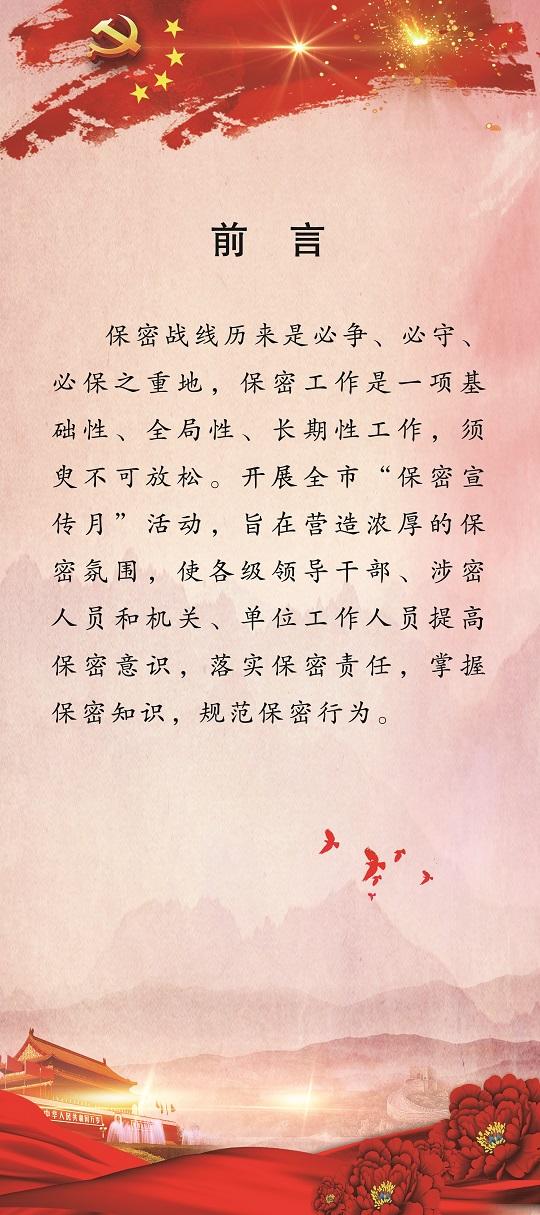 前 言
保密战线历来是必争、必守、
必保之重地，保密工作是一项基
础性、全局性、长期性工作，须
臾不可放松。开展全市“保密宣
传月”活动，旨在营造浓厚的保
密氛围，使各级领导干部、涉密
人员和机关、单位工作人员提高
保密意识，落实保密责任，掌握
保密知识，规范保密行为。
中华人民共和国万岁